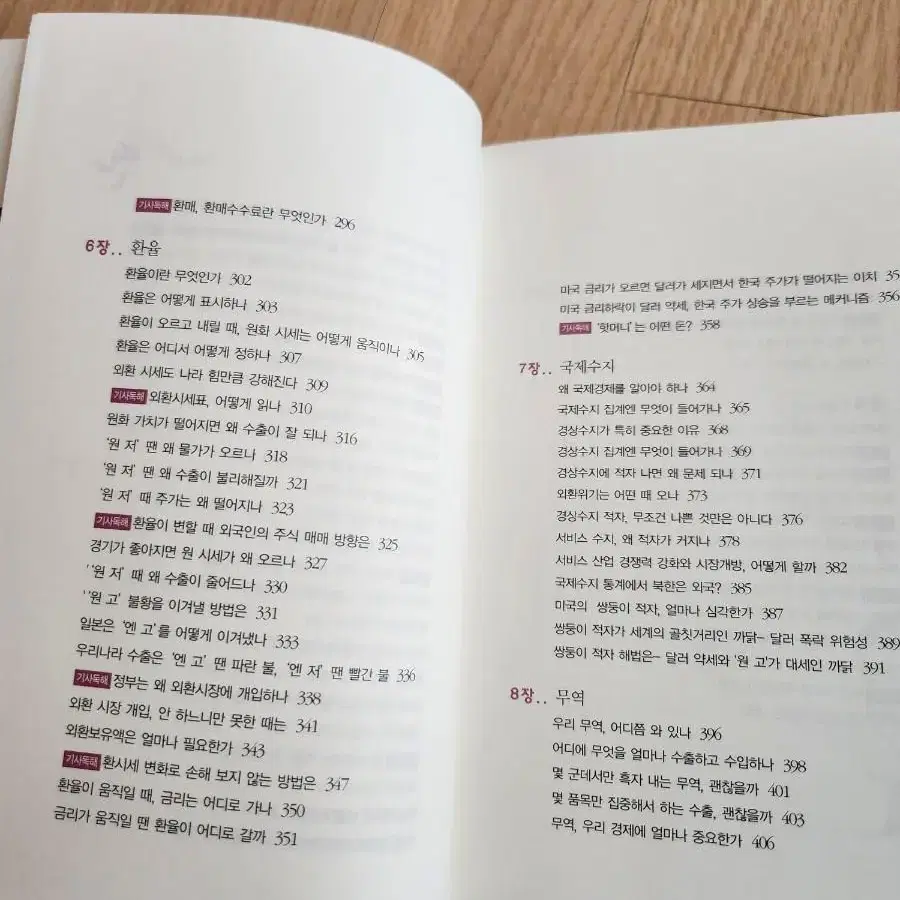 기사독해 환매, 환매수수료란 무엇인가 296
6장.. 환율
환율이란 무엇인가 302
환율은 어떻게 표시하나 303
환율이 오르고 내릴 때, 원화 시세는 어떻게 움직이나 305
환율은 어디서 어떻게 정하나 307
외환 시세도 나라 힘만큼 강해진다 309
기사독해 외환시세표, 어떻게 읽나 310
원화 가치가 떨어지면 왜 수출이 잘 되나 316
'원 저' 땐 왜 물가가 오르나 318
'원 저' 땐 왜 수출이 불리해질까 321
'원 저' 때 주가는 왜 떨어지나 323
기사독해 환율이 변할 때 외국인의 주식 매매 방향은 325
경기가 좋아지면 원 시세가 왜 오르나 327
'원 저' 때 왜 수출이 줄어드나 330
'원 고' 불황을 이겨낼 방법은 331
일본은 '엔 고'를 어떻게 이겨냈나 333
우리나라 수출은 '엔 고' 땐 파란 불, '엔 저' 땐 빨간 불 336
기사독해 정부는 왜 외환시장에 개입하나 338
외환 시장 개입, 안 하느니만 못한 때는 341
외환보유액은 얼마나 필요한가 343
기사독해 환시세 변화로 손해 보지 않는 방법은 347
환율이 움직일 때, 금리는 어디로 가나 350
금리가 움직일 땐 환율이 어디로 갈까 351
미국 금리가 오르면 달러가 세지면서 한국 주가가 떨어지는 이치
미국 금리하락이 달러 약세, 한국 주가 상승을 부르는 메커니즘 356
기사독해 '핫머니'는 어떤 돈? 358
7장.. 국제수지
왜 국제경제를 알아야 하나 364
국제수지 집계엔 무엇이 들어가나 365
경상수지가 특히 중요한 이유 368
경상수지 집계엔 무엇이 들어가나 369
경상수지에 적자 나면 왜 문제 되나 371
외환위기는 어떤 때 오나 373
경상수지 적자, 무조건 나쁜 것만은 아니다 376
서비스 수지, 왜 적자가 커지나 378
서비스 산업 경쟁력 강화와 시장개방, 어떻게 할까 382
국제수지 통계에서 북한은 외국? 385
미국의 쌍둥이 적자, 얼마나 심각한가 387
쌍둥이 적자가 세계의 골칫거리인 까닭- 달러 폭락 위험성 389
쌍둥이 적자 해법은- 달러 약세와 '원 고'가 대세인 까닭 391
8장.. 무역
우리 무역, 어디쯤 와 있나 396
어디에 무엇을 얼마나 수출하고 수입하나 398
몇 군데서만 흑자 내는 무역, 괜찮을까 401
몇 품목만 집중해서 하는 수출, 괜찮을까 403
무역, 우리 경제에 얼마나 중요한가 406